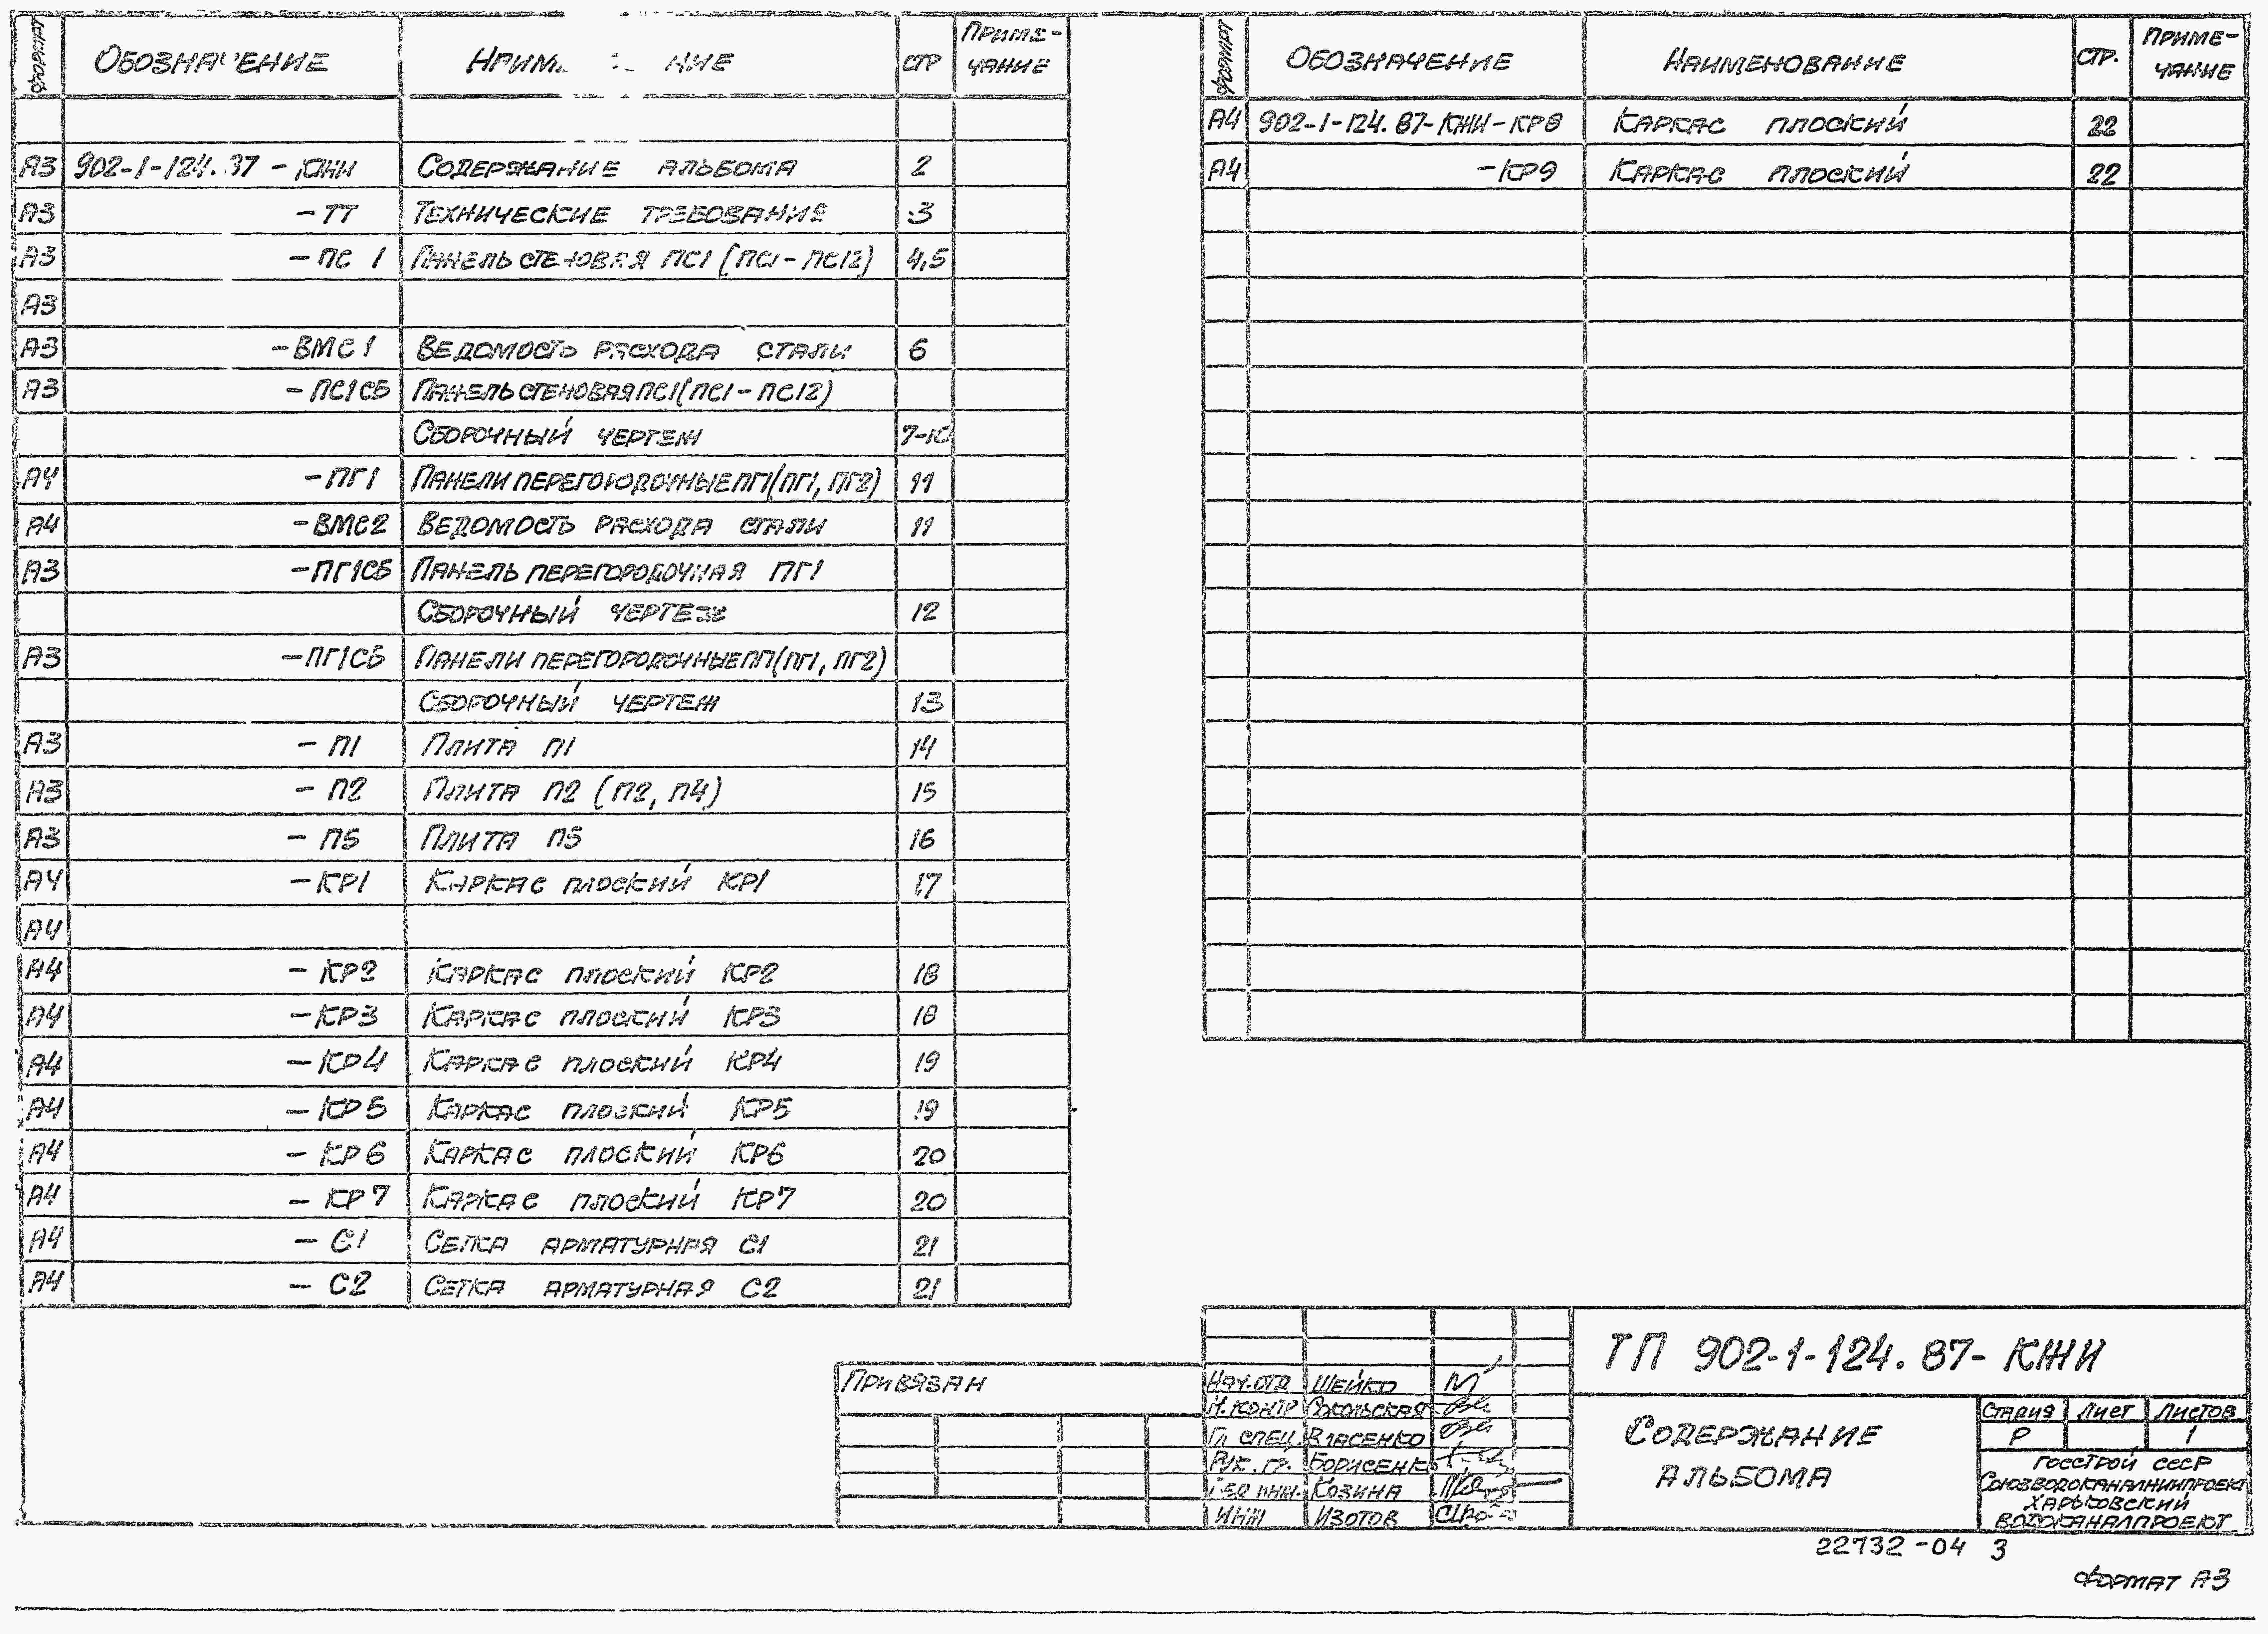 Формат Обозначение Стр Приме-
чание
А3 902-1-124.87 - КЖИ Содержание альбома 2
А3 - ТТ Технические требования 3
А3 - ПС 1 Панель стеновая ПС1 (ПС1 - ПС12) 4,5
А3
А3 - ВМС1 Ведомость расхода стали 6
А3 - ПС1СБ Панель стеновая ПС1 (ПС1 - ПС12)
Сборочный чертеж 7-10
А4 - ПГ1 Панели перегородочные ПГ1 (ПГ1, ПГ2) 11
А4 - ВМС2 Ведомость расхода стали 11
А3 - ПГ1СБ Панель перегородочная ПГ1
Сборочный чертеж 12
А3 - ПГ1СБ Панели перегородочные ПГ1 (ПГ1, ПГ2)
Сборочный чертеж 13
А3 - П1 Плита П1 14
А3 - П2 Плита П2 (П2, П4) 15
А3 - П5 Плита П5 16
А4 - КР1 Каркас плоский КР1 17
А4
А4 - КР2 Каркас плоский КР2 18
А4 - КР3 Каркас плоский КР3 18
А4 - КР4 Каркас плоский КР4 19
А4 - КР5 Каркас плоский КР5 19
А4 - КР6 Каркас плоский КР6 20
А4 - КР7 Каркас плоский КР7 20
А4 - С1 Сетка арматурная С1 21
А4 - С2 Сетка арматурная С2 21
Формат Обозначение Наименование Стр. Приме-
чание
А4 902-1-124.87-КЖИ-КР8 Каркас плоский 22
А4 -КР9 Каркас плоский 22
Привязан
Нач.отд Шейко
Н.контр Сокольская
Гл спец. Власенко
Рук. гр. Борисенко
Вед инж. Козина
Инж Изотов
ТП 902-1-124.87- КЖИ
Содержание
альбома
Стадия Лист Листов
Р 1
Госстрой СССР
Союзводоканалниипроект
Харьковский
Водоканалпроект
22732-04 3
Формат А3